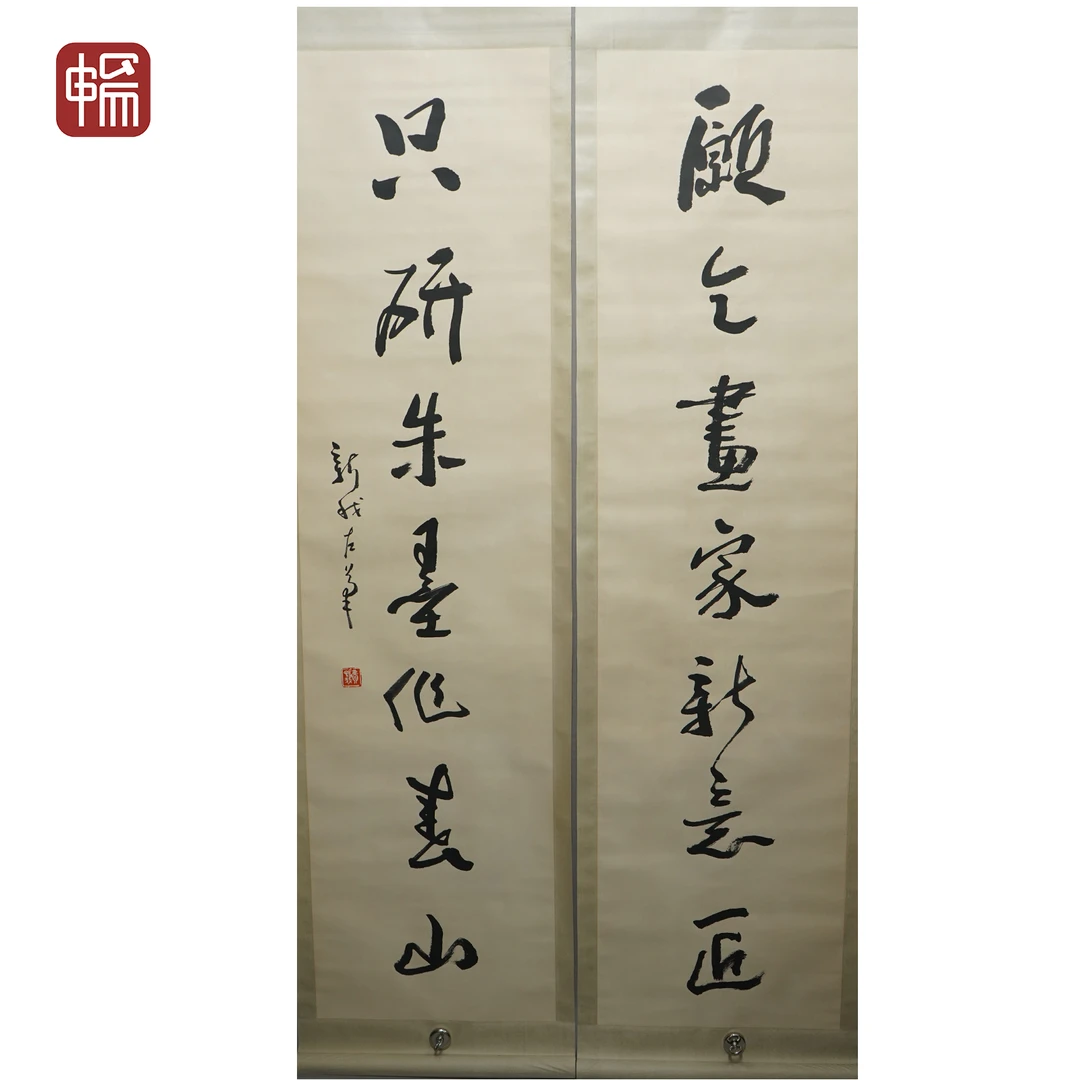 願乞畫家新意匠
只研朱墨作春山
新我左筆